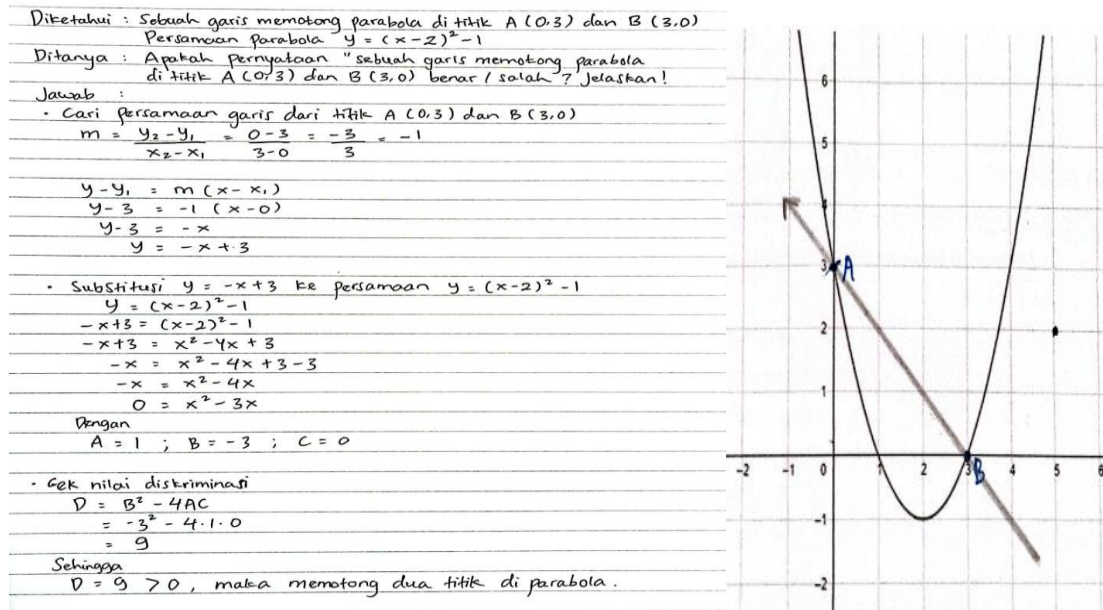 Diketahui : Sebuah garis memotong parabola di titik A (0,3) dan B (3,0)
Persamaan Parabola y = (x-2)² - 1
Ditanya : Apakah pernyataan "sebuah garis memotong parabola
di titik A (0,3) dan B (3,0) benar / salah ? Jelaskan!
Jawab :
· Cari persamaan garis dari titik A (0,3) dan B (3,0)
m = y₂ - y₁ / x₂ - x₁ = 0 - 3 / 3 - 0 = -3 / 3 = -1
y - y₁ = m (x - x₁)
y - 3 = -1 (x - 0)
y - 3 = - x
y = - x + 3
· Substitusi y = -x+3 ke persamaan y = (x-2)² - 1
y = (x-2)² - 1
-x+3 = (x-2)² - 1
-x+3 = x² - 4x + 3
-x = x² - 4x + 3 - 3
-x = x² - 4x
0 = x² - 3x
Dengan
A = 1 ; B = -3 ; C = 0
· Cek nilai diskriminasi
D = B² - 4AC
= -3² - 4·1·0
= 9
Sehingga
D = 9 > 0, maka memotong dua titik di parabola.
6
5
4
3 A
2
1
-2 -1 0 1 2 3 B 4 5 6
-1
-2